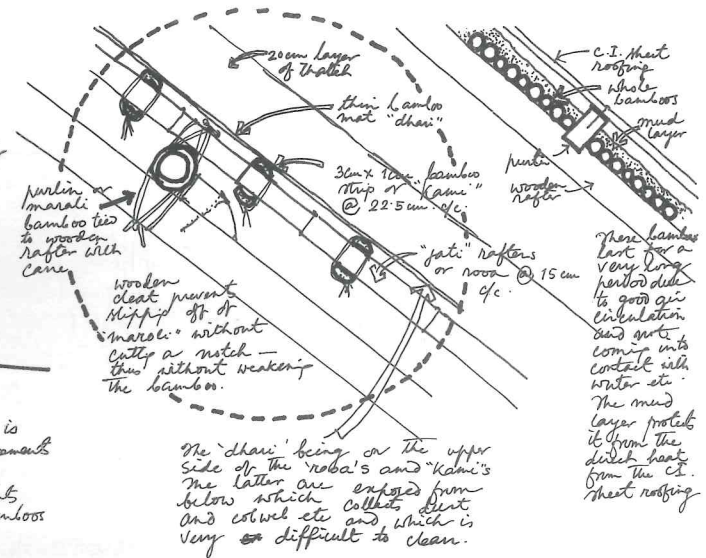 20cm layer
of Thatch
thin bamboo
mat "dhari"
3cm x 1cm bamboo
strip or "Kami"
@ 22.5cm c/c.
"jati" rafters
or rooa @ 15cm
c/c.
purlin or
marali
bamboo tied
to wooden
rafter with
cane
wooden
cleat prevent
slippig off of
"maroli" without
cuttg a notch —
thus without weakening
the bamboo.
The 'dhari' being on the upper
side of the 'rooa's and "Kami"s
the latter are exposed from
below which collects dust
and cobweb etc and which is
very difficult to clean.
C.I. sheet
roofing
whole
bamboos
mud
layer
purlin
wooden
rafter
These bamboos
last for a
very long
period due
to good air
circulation
and not
coming into
contact with
water etc.
The mud
layer protects
it from the
direct heat
from the CI.
sheet roofing
is